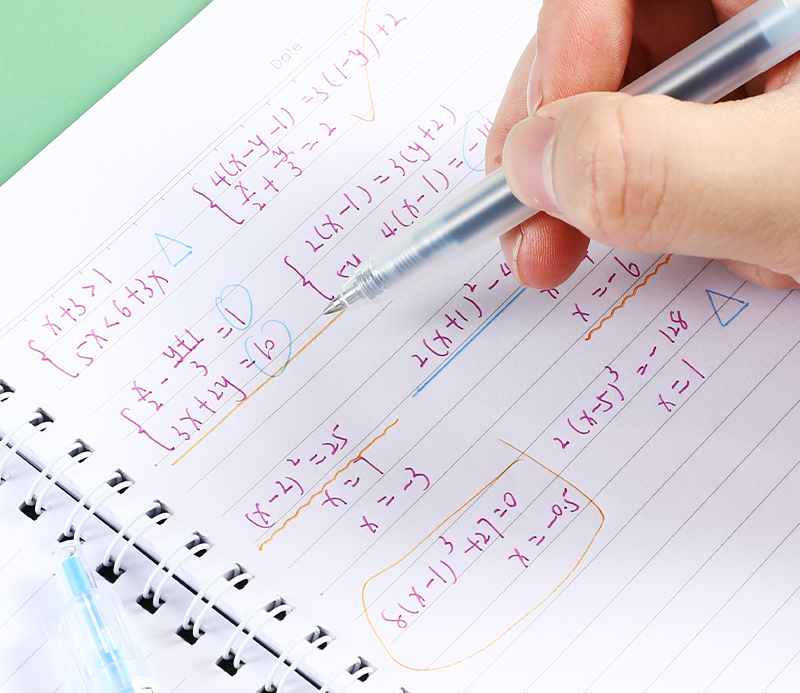 Date:
4(x-y-1)=3(1-y)+2
x/2+y/3=2
2(x-1)=3(y+2)
4(x-1)=
x+3>1
5x<6+3x
x/2-y+1/3=1
3x+2y=10
2(x+1)²-4
x=-6
2(x-5)³=-128
x=1
(x-2)²=25
x=7
x=-3
8(x-1)³+27=0
x=-0.5